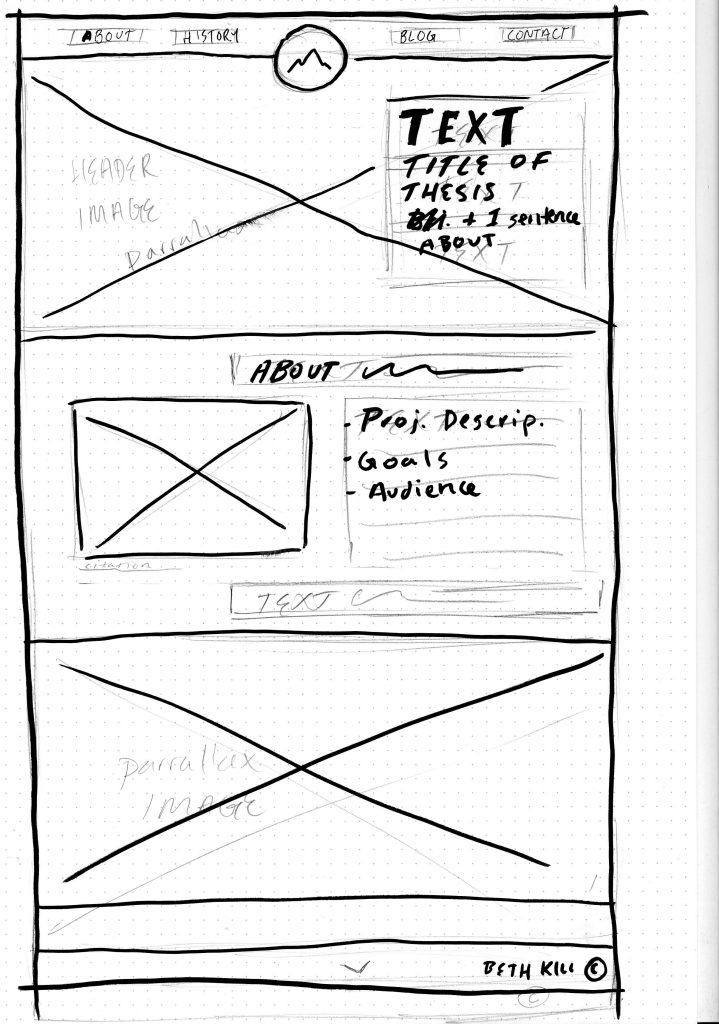 ABOUT
HISTORY
BLOG
CONTACT
HEADER
IMAGE
TEXT
TITLE OF
THESIS
+ 1 sentence
ABOUT
TEXT
ABOUT
- Proj. Descrip.
- Goals
- Audience
citation
TEXT
parrallax
IMAGE
BETH KILL ©